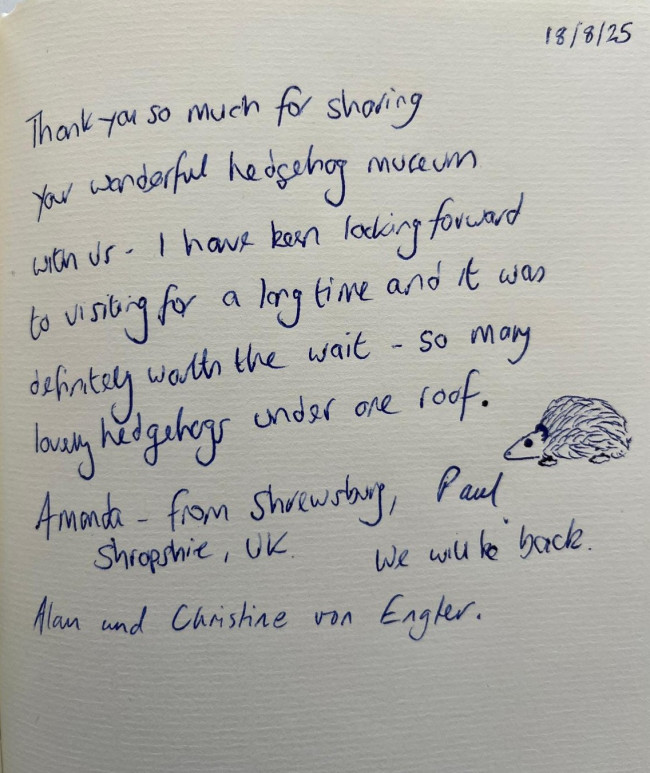 18/8/25
Thank you so much for sharing
your wonderful hedgehog museum
with us - I have been looking forward
to visiting for a long time and it was
definitely worth the wait - so many
lovely hedgehogs under one roof.
Amanda - from Shrewsbury, Paul
Shropshire, UK. We will be back.
Alan und Christine von Engler.